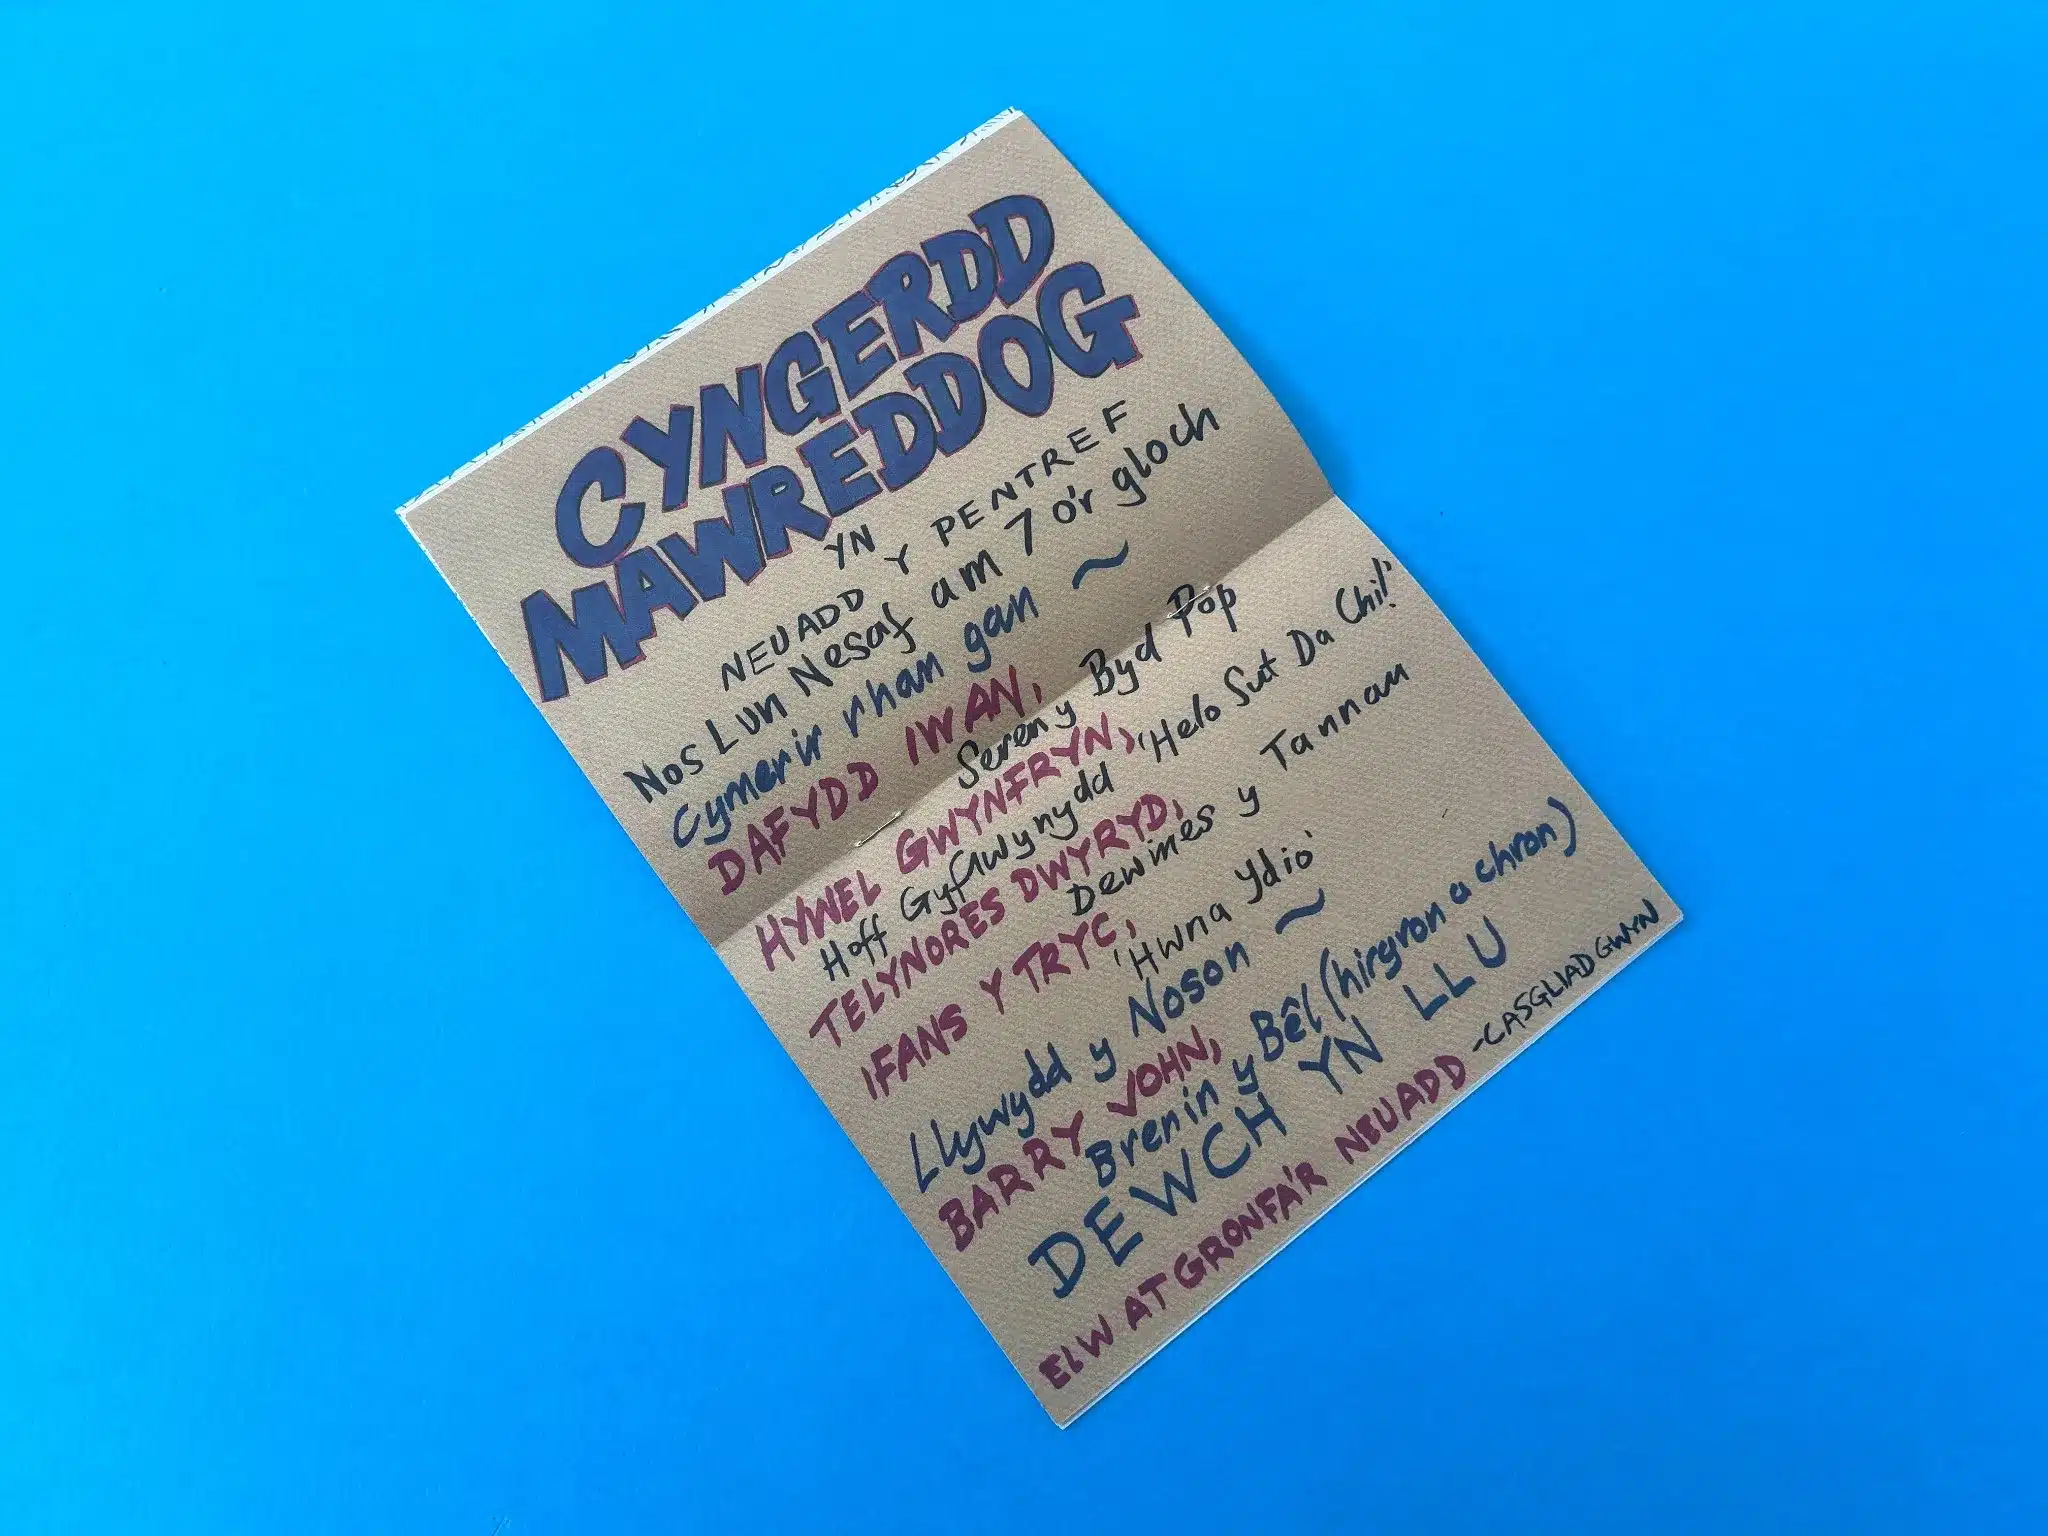 CYNGERDD
MAWREDDOG
YN
NEUADD Y PENTREF
Nos Lun Nesaf am 7 o'r gloch
Cymerir rhan gan ~
DAFYDD IWAN,
Seren y Byd Pop
HYWEL GWYNFRYN,
Hoff Gyflwynydd 'Helo Sut Da Chi!'
TELYNORES DWYRYD,
Dewines y Tannau
IFANS Y TRYC,
'Hwna Ydio'
Llywydd y Noson ~
BARRY JOHN,
Brenin y Bêl (hirgron a chron)
DEWCH YN LLU
ELW AT GRONFA'R NEUADD
-CASGLIAD GWYN